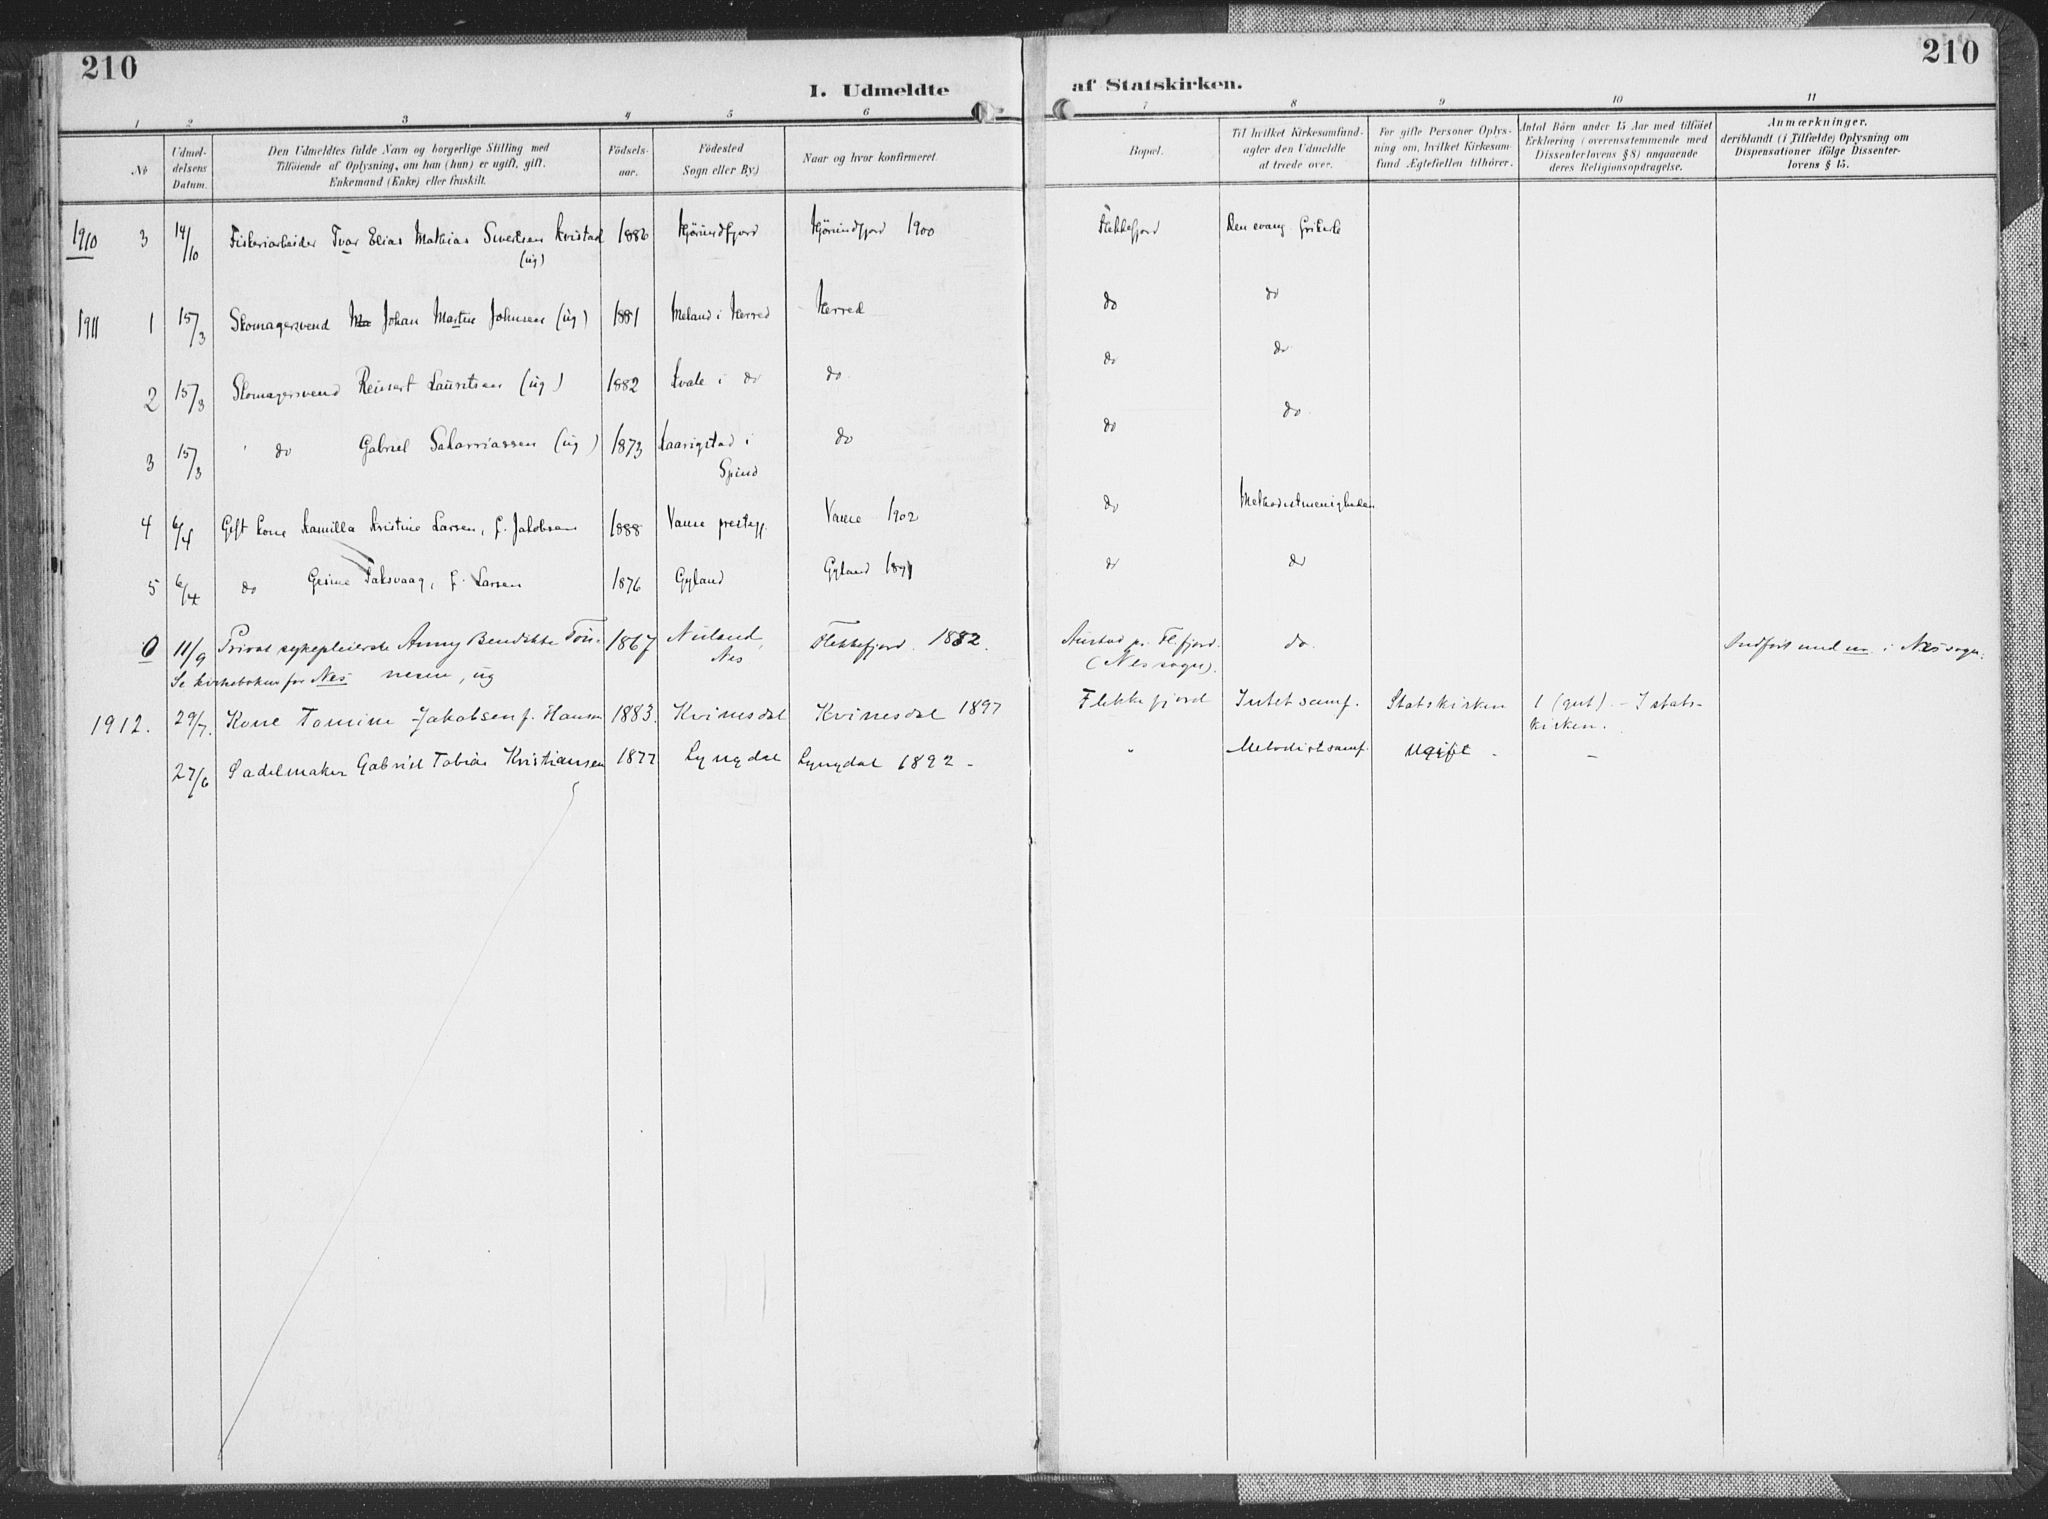 210
210
I. Udmeldte
af Statskirken.
1 2 3 4 5 6 7 8 9 10 11
№
Udmel-
delsens
Datum.
Den Udmeldtes fulde Navn og borgerlige Stilling med
Tilföiende af Oplysning, om han (hun) er ugift, gift,
Enkemand (Enke) eller fraskilt.
Födsels-
aar.
Födested
Sogn eller By.)
Naar og hvor konfirmeret.
Bopæl.
Til hvilket Kirkesamfund-
agter den Udmeldte
at træde over.
For gifte Personer Oplys-
ning om, hvilket Kirkesam-
fund Ægtefællen tilhörer.
Antal Börn under 15 Aar med tilföiet
Erklæring (overensstemmende med
Dissenterlovens § 8) angaaende
deres Religionsopdragelse.
Anmærkninger,
deriblandt (i Tilfælde) Oplysning om
Dispensationer ifölge Dissenter-
lovens § 15.
1910 3 14/10 Fiskeriarbeider Ivar Elias Mathias Sivertsen Kvistad 1886 Hjörundfjord Hjörundfjord 1900 Flekkefjord Den evang.
(ug)
1911 1 15/3 Skomagersvend Johan Martin Johnsen (ug) 1881 Meland i Herred Herred do do
2 15/3 Skomagersvend Reinert Lauritsen (ug) 1882 Kvale i do do do do
3 15/3 do Gabriel Sakarriassen (ug) 1873 Kaarigstad i do do do
Spind
4 6/4 Gift Kone Kamilla Kristine Larsen, f. Jakobsen 1888 Vanse prestegj. Vanse 1902 do Methodistmenigheden
5 6/4 do Gesine Saksvaag, f. Larsen 1876 Gyland Gyland 1891 do do
0 11/9 Privat sykepleierske Anny Bendikte Tön- 1867 Nuland, Flekkefjord. 1882. Austad pr. Fl.fjord do. Indført und no i Nes sogn.
Se kirkeboken for Nes nesen, ug Nes (Nes sogn).
1912. 29/7. Kone Tomine Jakobsen f. Hansen 1883. Kvinesdal Kvinesdal 1897 Flekkefjord Intet samf. Statskirken 1 (gut). - I stats-
kirken.
27/6 Sadelmaker Gabriel Tobias Kristiansen 1877 Lyngdal Lyngdal 1892 - " Metodistsamf. Ugift - -